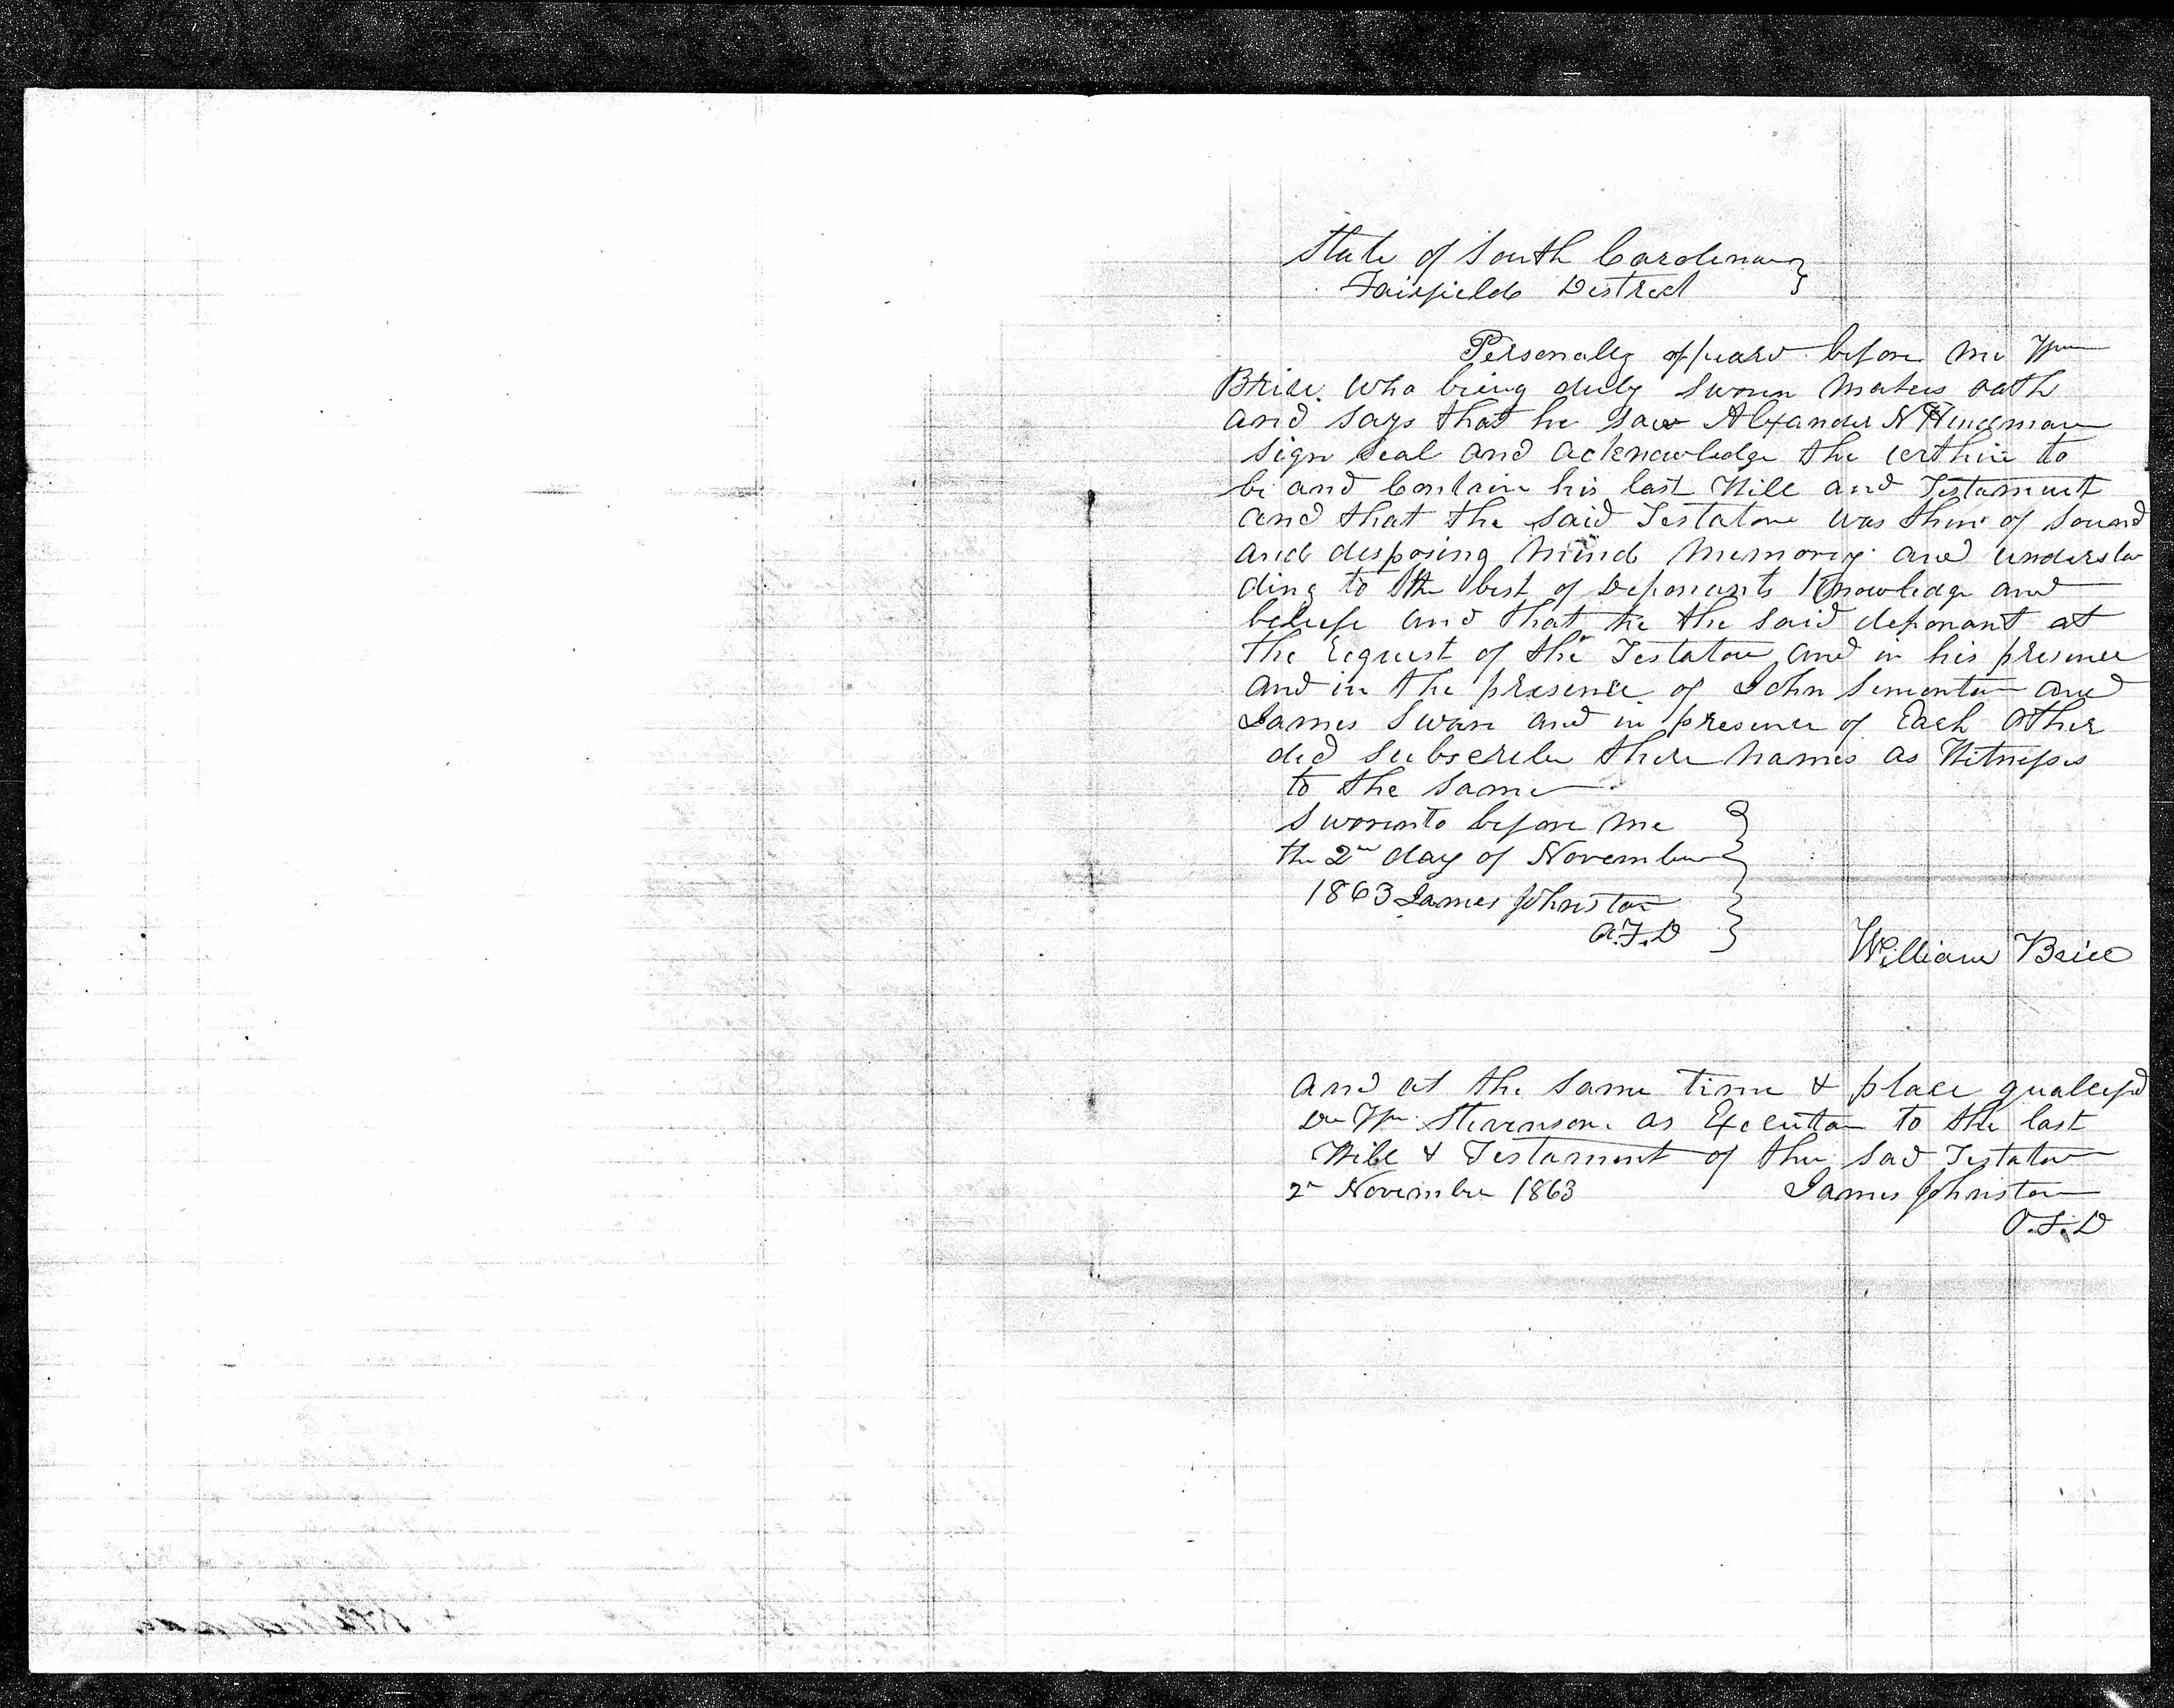 State of South Carolina }
Fairfield District
Personally appeard before me Wm
Brice. who being duly sworn makes oath
and says that he saw Alexander N Hindman
sign seal and acknowledge the within to
be and Contain his last Will and Testament
and that the said Testator was then of sound
and disposing mind memory and understan
ding to the best of Deponants Knowledge and
beliefe and that he the said deponant at
the request of the Testator and in his presence
and in the presence of John Simonton and
James Swan and in presence of Each Other
did subscribe there names as Witnesses
to the same
Sworn to before me
the 2nd day of November
1863 James Johnston
O.F.D
William Brice
and at the same time & place qualifid
Dr Wm Stevenson. as Executor to the last
Will & Testament of the Sad Testator
2n November 1863 James Johnston
O.F.D